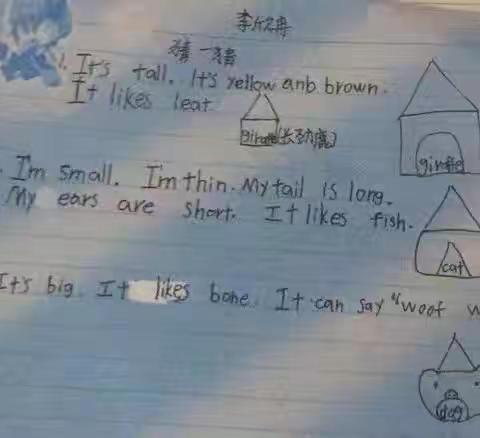 李欣冉
猜一猜
1. It's tall. It's yellow anb brown.
It likes leat
giraffe(长颈鹿)
giraffe
I'm small. I'm thin. My tail is long.
My ears are short. It likes fish.
cat
It's big. It likes bone. It can say "woof w
dog